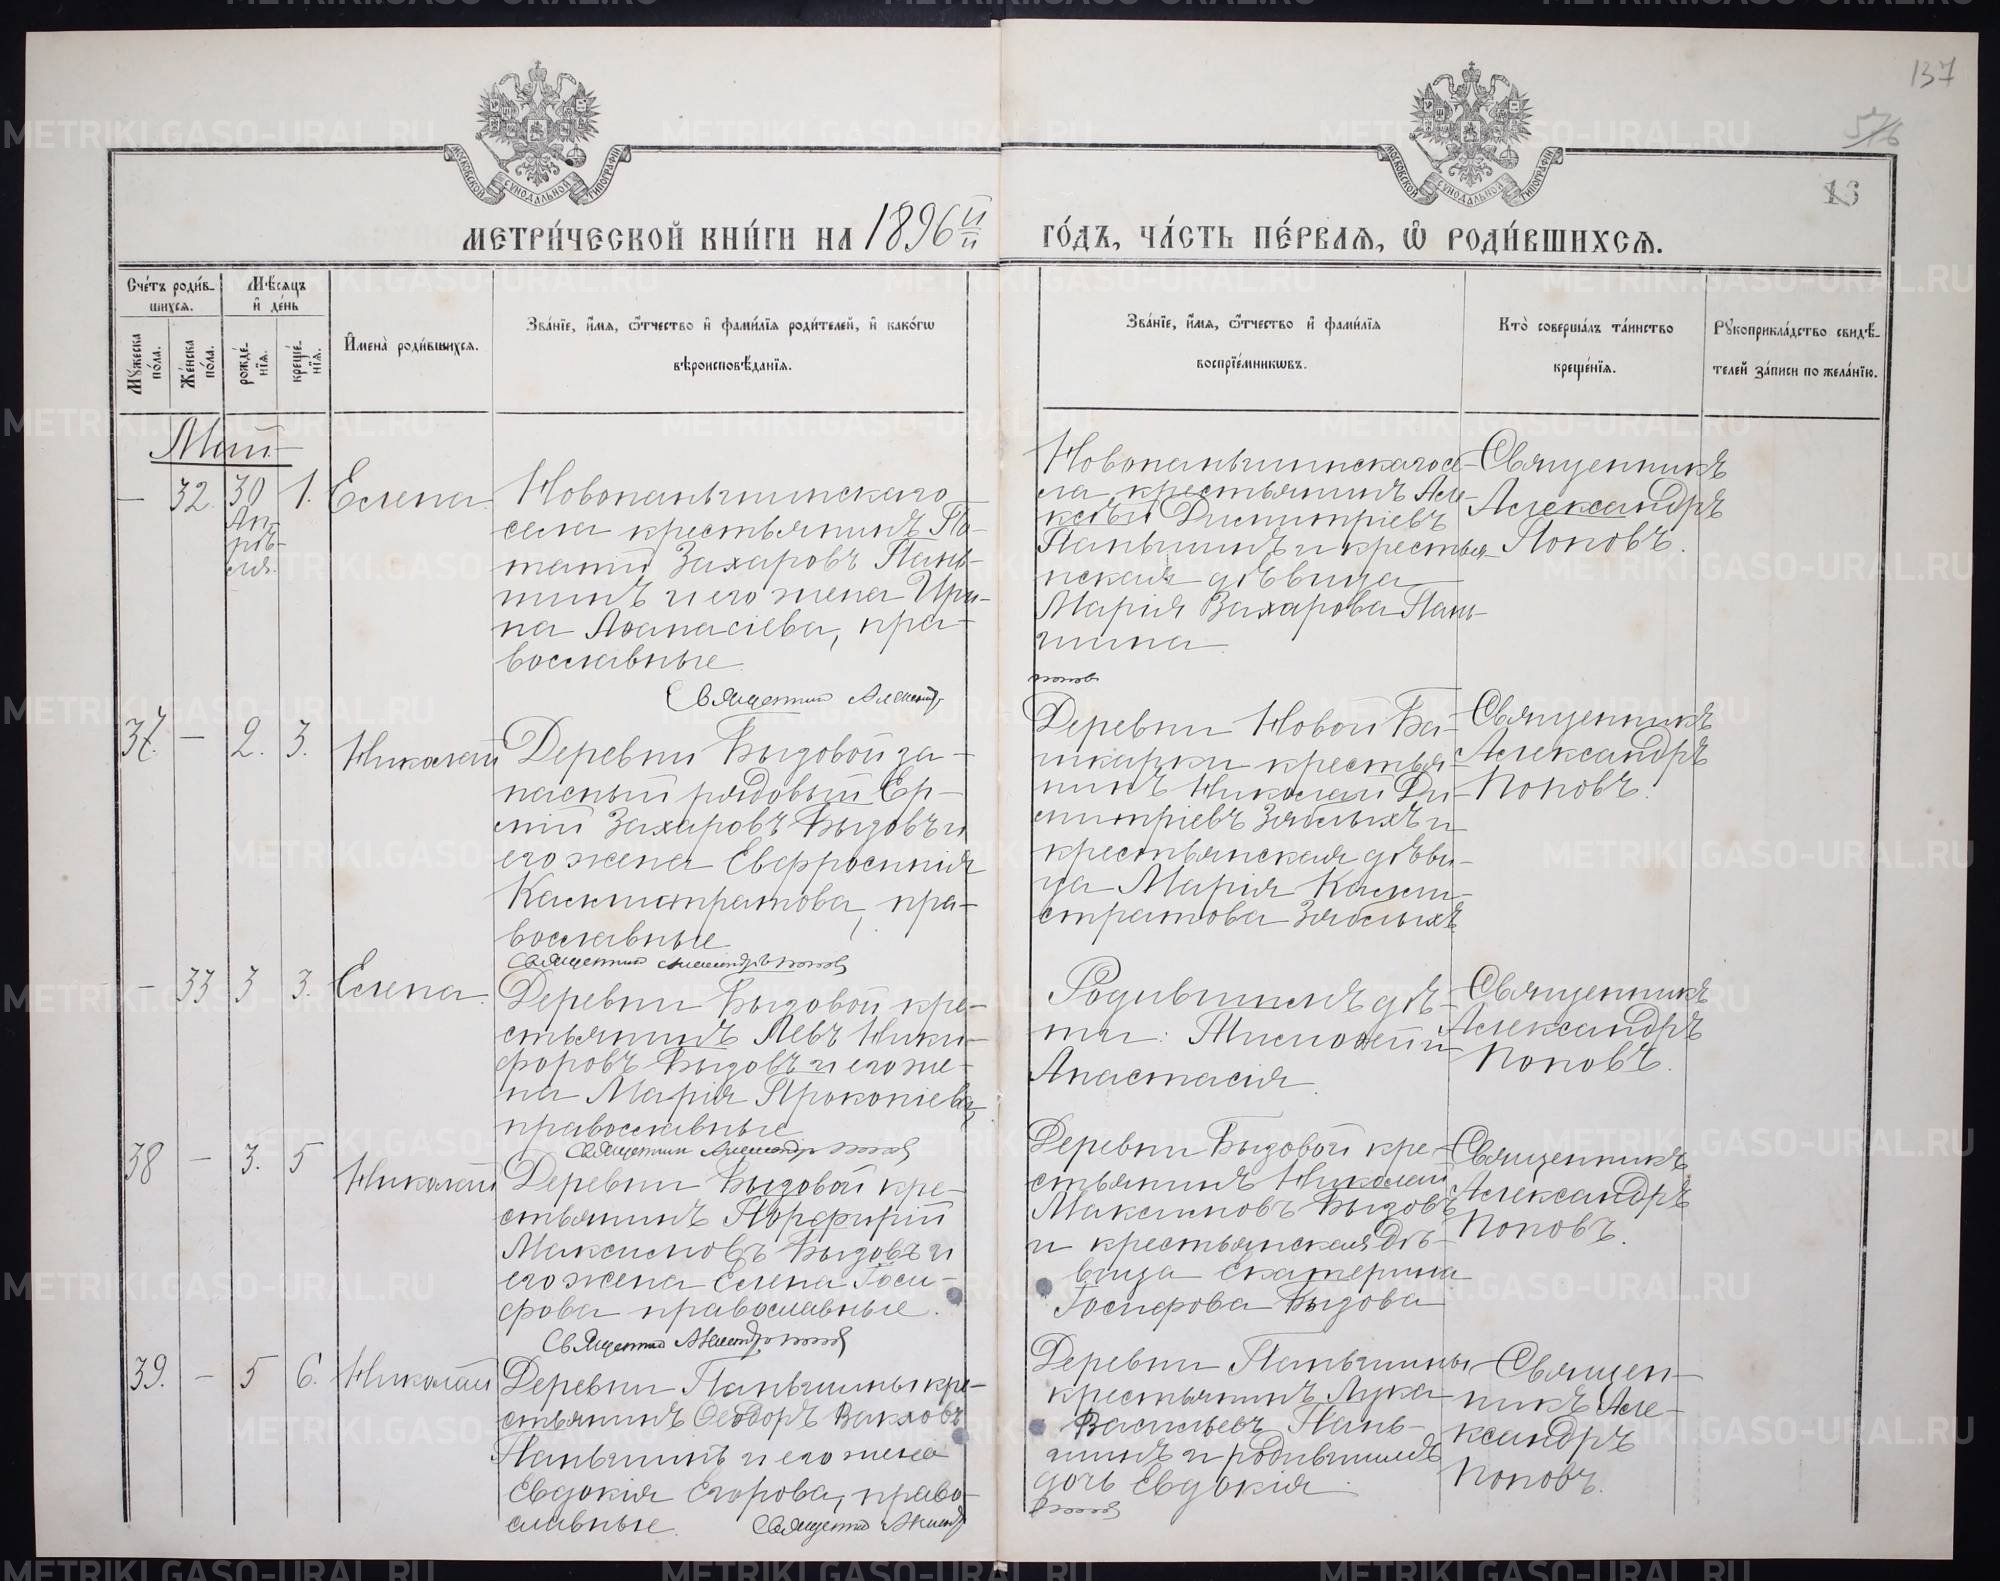 137
5/16
13
МОСКОВСКОЙ СѴНОДАЛЬНОЙ ТИПОГРАФІИ
МОСКОВСКОЙ СѴНОДАЛЬНОЙ ТИПОГРАФІИ
МЕТРИ́ЧЕСКОЙ КНИ́ГИ НА 1896й ГО́ДЪ, ЧА́СТЬ ПЕ́РВАѦ, Ѡ҆ РОДИ́ВШИХСѦ.
Сче́тъ роди́в-
шихсѧ.
Мѣ́сѧцъ
и҆ де́нь
Мꙋ́жеска
по́ла.
Же́нска
по́ла.
рожде́-
нїѧ.
креще́-
нїѧ.
И҆мена̀ роди́вшихсѧ.
Зва́нїе, и҆́мѧ, ѻ҆́тчество и҆ фами́лїѧ роди́телей, и҆ како́гѡ
вѣроисповѣ́данїѧ.
Зва́нїе, и҆́мѧ, ѻ҆́тчество и҆ фами́лїѧ
воспрїе́мникѡвъ.
Кто̀ соверша́лъ та́инство
креще́нїѧ.
Рꙋкоприкла́дство свидѣ́-
телей за́писи по жела́нїю.
Май
— 32. 30 Ап-
рѣ-
ля. 1. Елена.
Новопаньшинскаго
села крестьянинъ По-
тапій Захаровъ Пань-
шинъ и его жена Ири-
на Аѳанасіева, пра-
вославные.
Священник Александр
Новопаньшинскаго се-
ла крестьянинъ Але-
ксѣй Димитріевъ
Паньшинъ и крестья-
нская дѣвица
Марія Захарова Пань-
шина.
Попов
Священникъ
Александръ
Поповъ.
37. — 2. 3. Николай
Деревни Бызовой за-
пасный рядовый Ер-
мій Захаровъ Бызовъ и
его жена Евфросинія
Каллистратова, пра-
вославные
Священник Александръ Попов
Деревни Новой Ба-
шкарки крестья-
нинъ Николай Ди-
митріевъ Зяблыхъ и
крестьянская дѣви-
ца Марія Калли-
стратова Зяблыхъ
Священникъ
Александръ
Поповъ.
— 33 3 3. Елена.
Деревни Бызовой кре-
стьянинъ Левъ Ники-
форовъ Бызовъ и его же-
на Марія Прокопіева,
православные
Священник Александр Попов
Родившимъ дѣ-
ти: Тимоѳей и
Анастасія
Священникъ
Александръ
Поповъ.
38 — 3. 5 Николай
Деревни Бызовой кре-
стьянинъ Порфирій
Максимовъ Бызовъ и
его жена Елена Іоси-
фова православные.
Священник Александр Попов
Деревни Бызовой кре-
стьянинъ Николай
Максимовъ Бызовъ
и крестьянская дѣ-
вица Екатерина
Іосифова Бызова
Священникъ
Александръ
Поповъ.
39. — 5 6. Николай
Деревни Паньшины кре-
стьянинъ Ѳеодоръ Вакховъ
Паньшинъ и его жена
Евдокія Егорова, право-
славные.
Священник Александр
Деревни Паньшины
крестьянинъ Лука
Васильевъ Пань-
шинъ и родившимъ
дочь Евдокія.
Попов
Священ-
никъ Але-
ксандръ
Поповъ.
METRIKI.GASO-URAL.RU